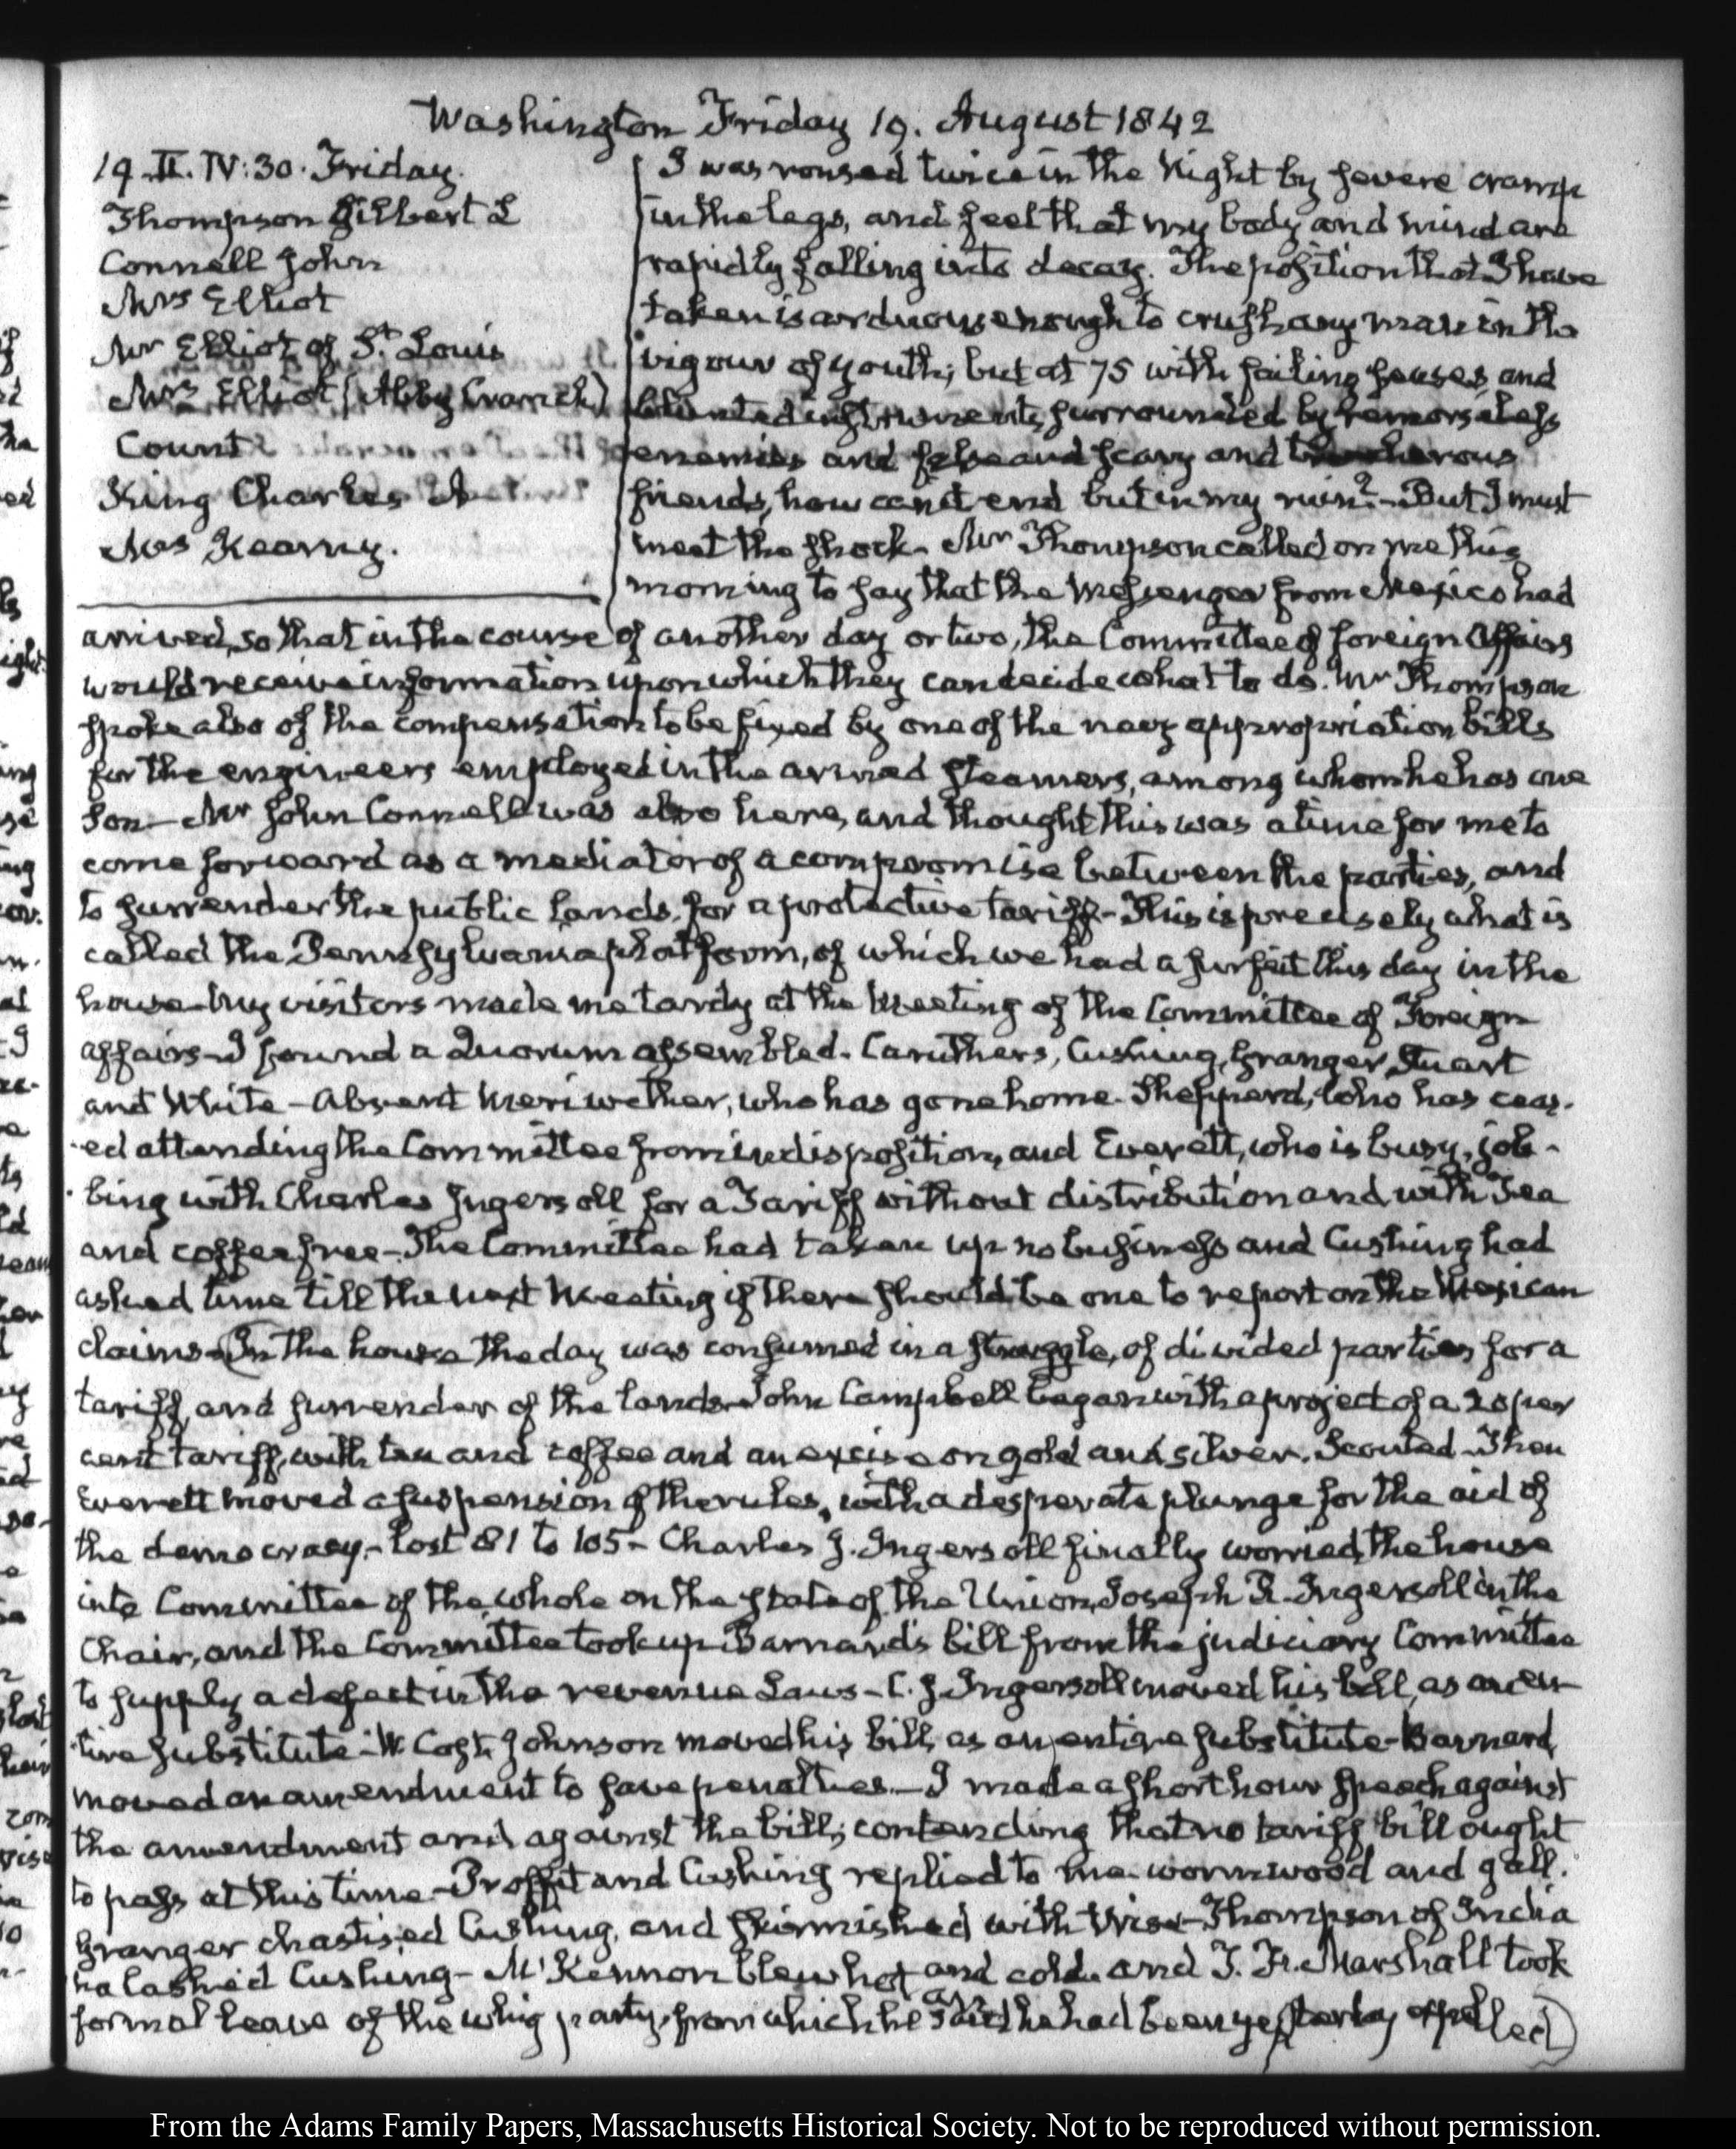 Washington Friday 19. August 1842
19. II. IV:30. Friday.
Thompson Gilbert L
Connell John
Mrs Elliot
Mr Elliot of St. Louis
Mrs Elliot (Abby Cranch)
Count
King Charles A
Mrs Kearny.
I was roused twice in the Night by severe cramp
in the legs, and feel that my body and mind are
rapidly falling into decay. The position that I have
taken is arduous enough to crush any man in the
vigour of youth; but at 75 with failing senses and
blunted instruments, surrounded by remorseless
enemies and false and scary and treacherous
friends, how can it end but in my ruin? - But I must
meet the shock. Mr Thompson called on me this
morning to say that the Messenger from Mexico had
arrived, so that in the course of another day or two, the Committee of foreign Affairs
would receive information upon which they can decide what to do. Mr Thompson
spoke also of the compensation to be fixed by one of the navy appropriation bills
for the engineers employed in the armed steamers, among whom he has one
son - Mr John Connell was also here, and thought this was a time for me to
come forward as a mediator of a compromise between the parties, and
to surrender the public lands, for a protective tariff - This is precisely what is
called the Pennsylvania platform, of which we had a surfeit this day in the
house - My visitors made me tardy at the Meeting of the Committee of Foreign
affairs - I found a Quorum assembled. Caruthers, Cushing, Granger, Stuart
and White - Absent Meriwether, who has gone home. Shepperd, who has ceas-
ed attending the Committee from indisposition, and Everett, who is busy, job-
bing with Charles Ingersoll for a Tariff without distribution and with Tea
and coffee free - The Committee had taken up no business and Cushing had
asked time till the next Meeting if there should be one to report on the Mexican
claims - (In the house the day was consumed in a struggle, of divided parties for a
tariff, and surrender of the lands - John Campbell began with a project of a 20 per
cent tariff, with tea and coffee and an excise on gold and silver. Scouted - Then
Everett moved a suspension of the rules, with a desperate plunge for the aid of
the democracy - lost 81 to 105 - Charles J. Ingersoll finally worried the house
into Committee of the whole on the state of the Union, Joseph R. Ingersoll in the
Chair, and the Committee took up Barnard's bill from the judiciary Committee
to supply a defect in the revenue Laws - C. J. Ingersoll moved his bill, as an en-
tire substitute - W. Cost Johnson moved his bill, as an entire substitute - Barnard
moved an amendment to save penalties - I made a short hour speech against
the amendment and against the bill; contending that no tariff bill ought
to pass at this time - Proffit and Cushing replied to me wormwood and gall.
Granger chastised Cushing, and skirmished with Wise - Thompson of India
na lashed Cushing - McKennon blew hot and cold and T. F. Marshall took
formal leave of the whig party, from which he said he had been yesterday expelled)
From the Adams Family Papers, Massachusetts Historical Society. Not to be reproduced without permission.